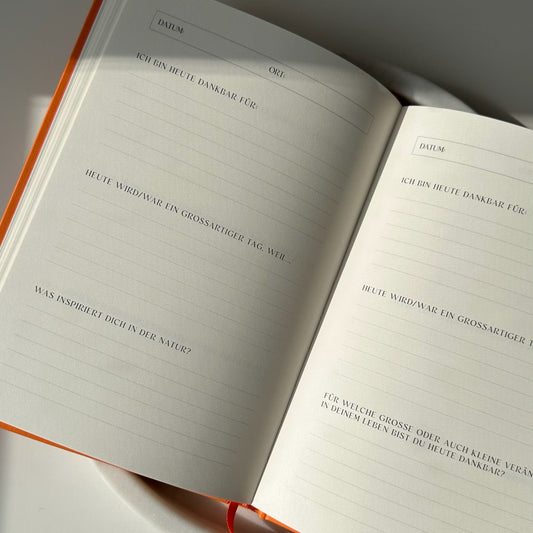 DATUM:
ORT:
ICH BIN HEUTE DANKBAR FÜR:
HEUTE WIRD/WAR EIN GROSSARTIGER TAG, WEIL...
WAS INSPIRIERT DICH IN DER NATUR?
DATUM:
ICH BIN HEUTE DANKBAR FÜR:
HEUTE WIRD/WAR EIN GROSSARTIGER T
FÜR WELCHE GROSSE ODER AUCH KLEINE VERÄN
IN DEINEM LEBEN BIST DU HEUTE DANKBAR?